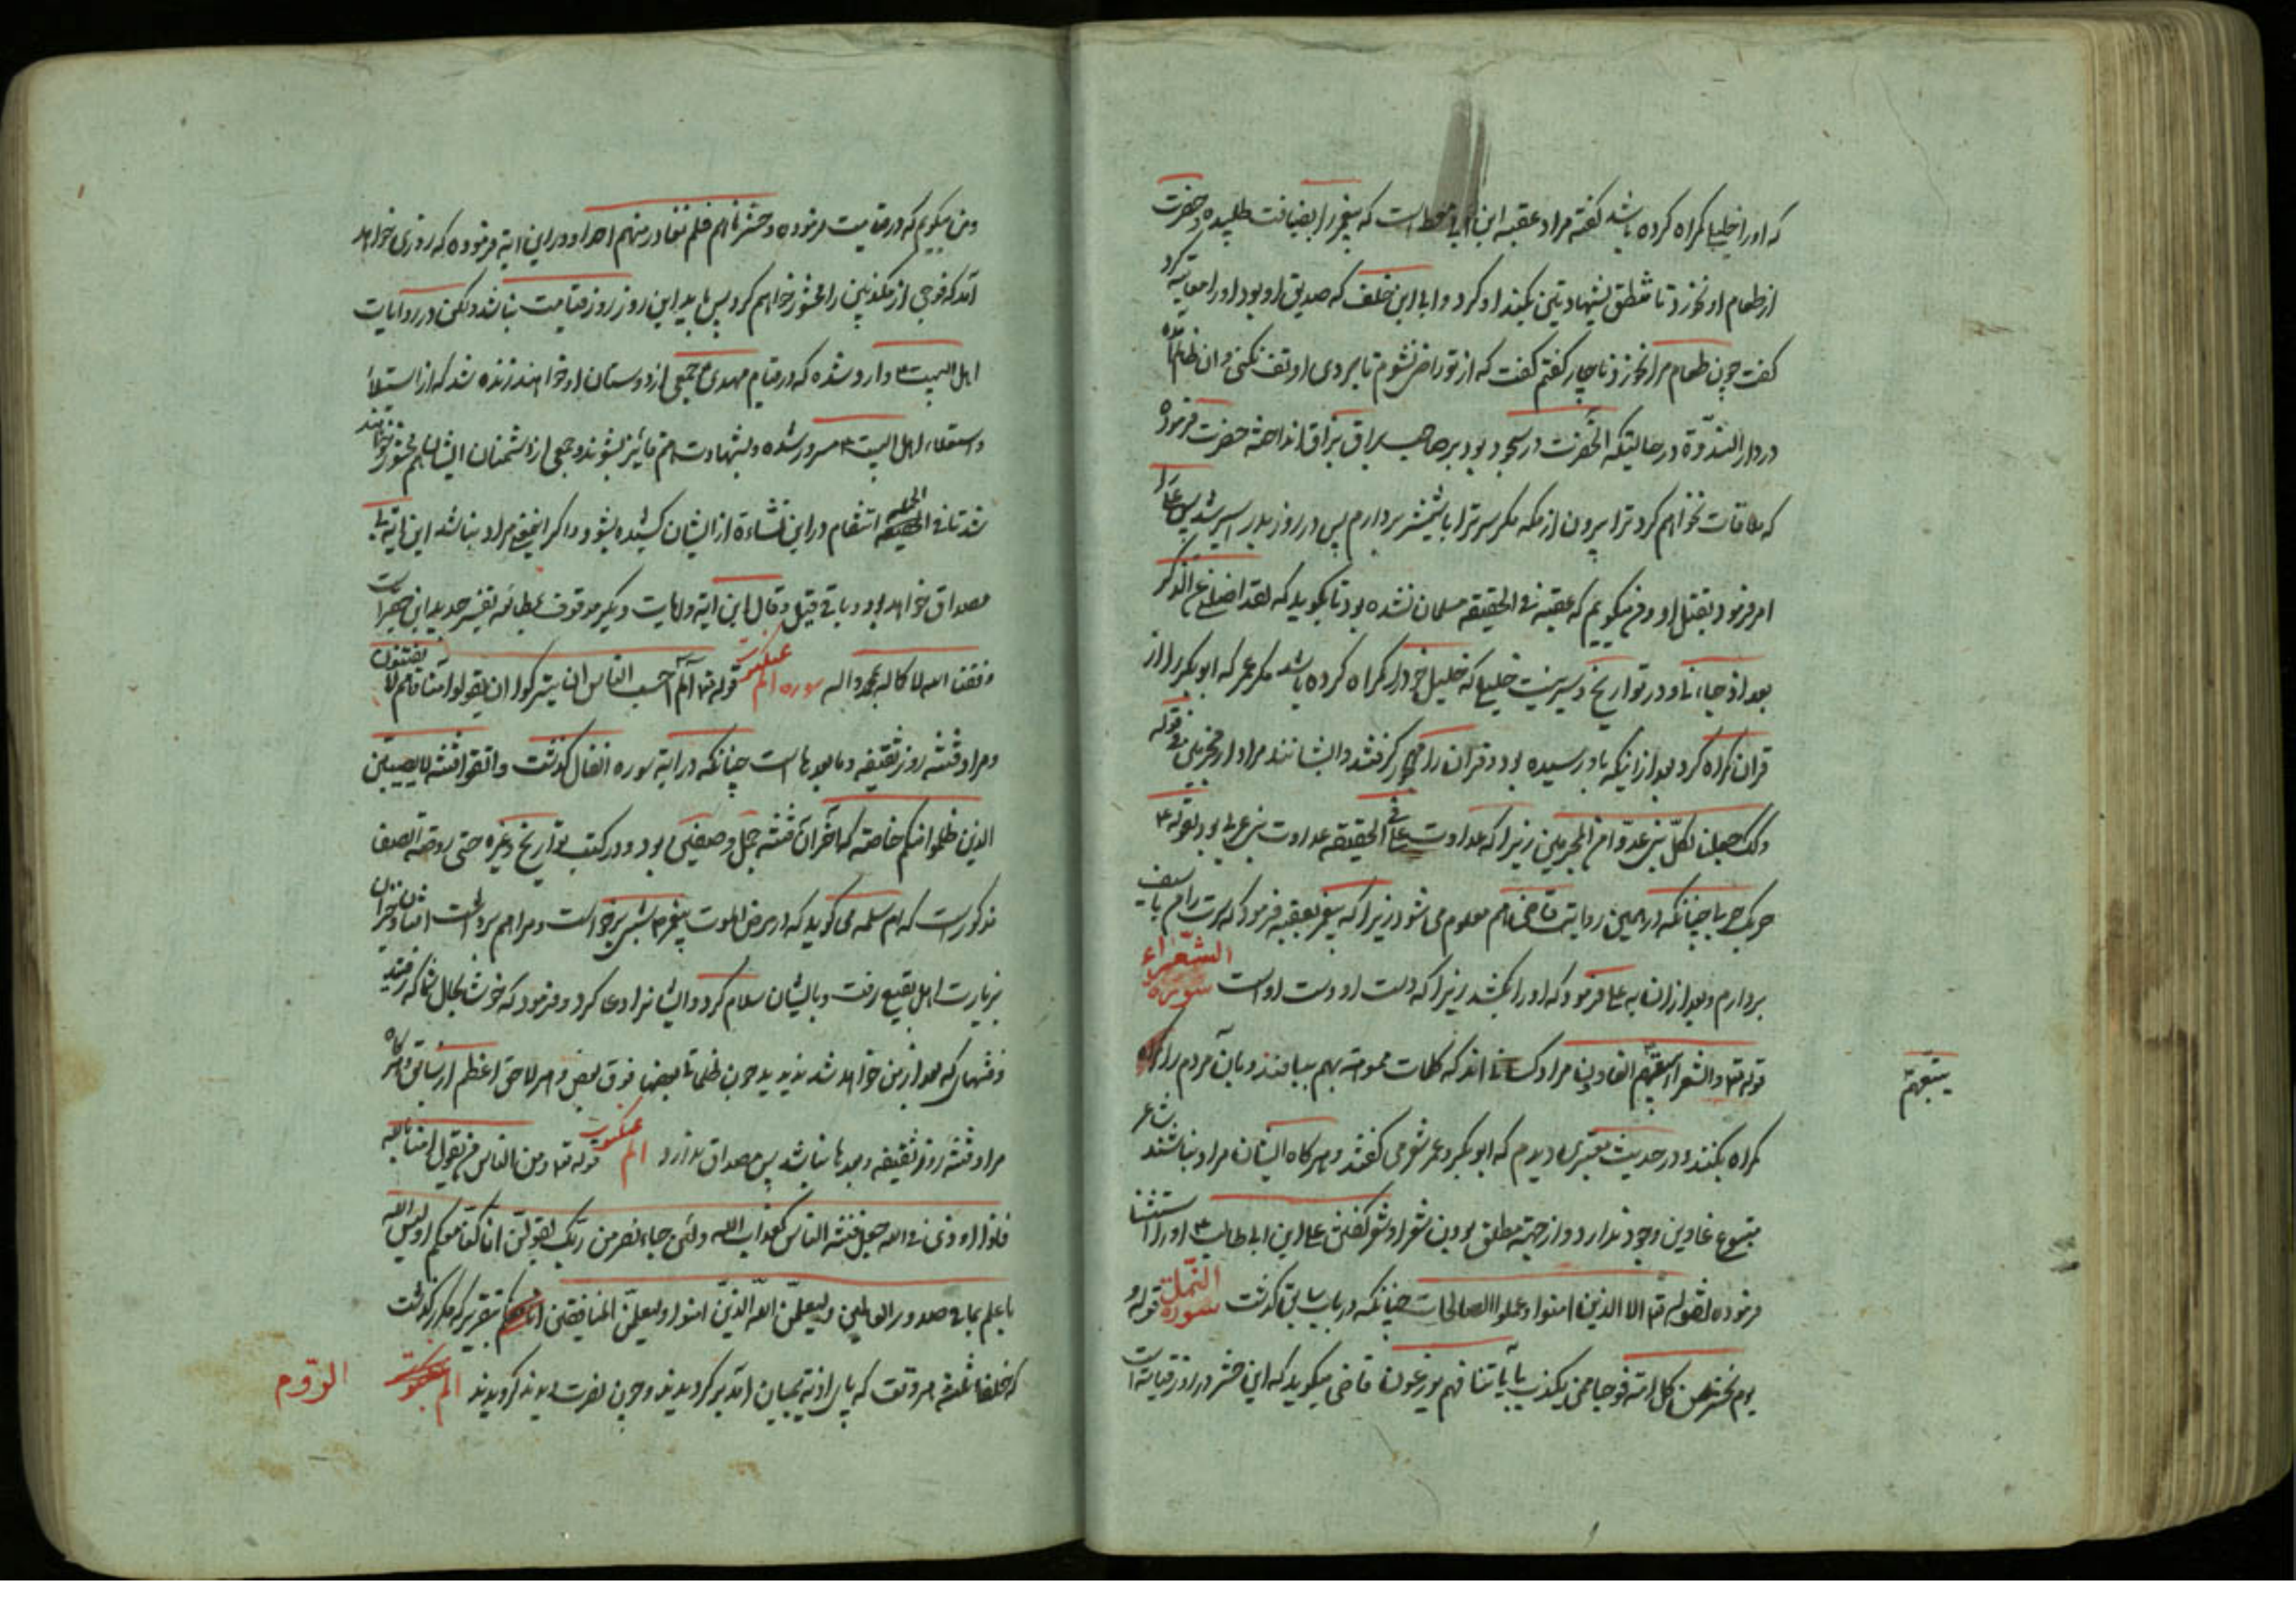 که اورا خلیلی کمراه کرده باشد کفته مراد عقبه ابن ابی معط است که پیغمبر را بضیافت طلبیده و حضرت
از طعام او نخورد تا منطق بشهادتین بکند او کرد و ابی ابن خلف که صدیق او بود اورا معاتبه کرد
کفت چون طعام مرا نخورد ناچار کفتم کفت که از تو راضی نشوم تا بروی او تف نکنی و ان ظالم
در دار الندوة در حالتیکه انحضرت در سجود بود بر صاحب براق بزاق انداخته حضرت فرموده
که ملاقات نخواهم کرد ترا بیرون از مکه مکر سر ترا با شمشیر بردارم پس در روز بدر اسیر شد پس علی را
امر فرمود بقتل او و من میکویم که عقبه فی الحقیقه مسلمان نشده بود تا بکوید که لقد اضلنی عن الذکر
بعد اذ جاءنی و در تواریخ و سیر نیست خلیلی که خلیل خود را کمراه کرده باشد مکر عمر که ابو بکر را از
قران کمراه کرد بعد از اینکه باو رسیده بود و قران را مهجور کرفتند والبته مراد از مجرمین فی قوله
وکذلک جعلنا لکل نبی عدوا من المجرمین زیرا که عداوت علی فی الحقیقه عداوت نبی عربی بود بقوله ع
حربک حربی چنانکه در همین روایت قاضی هم معلوم می شود زیرا که پیغمبر بعقبه فرمود که سرت را من با سیف
بردارم و بعد از ان به علی فرمود که اورا بکشد زیرا که دست او دست اوست سوره الشعراء
قوله تعالی والشعراء یتبعهم الغاوون مراد کسانی اند که کلمات مموهة بهم ببافند و بان مردم را کمراه
یتبعهم
کمراه بکنند و در حدیث معتبری دیدم که ابو بکر و عمر شعر می کفتند و هرکاه ایشان مراد نباشند شاعر
متبوع غاوین وجود ندارد و از جهت مطلق بودن شعرا و شعر کفتن علی ابن ابی طالب ع اورا استثنا
فرموده بقوله تعالی الا الذین امنوا وعملوا الصالحات چنانکه در باب سابق کذشت سوره النمل قوله
یوم نحشر من کل امة فوجا ممن یکذب بآیاتنا فهم یوزعون قاضی میکوید که این حشر در روز قیامت است
ومن میکویم که در قیامت فرموده وحشرناهم فلم نغادر منهم احدا و در این ایة فرموده که روزی خواهد
آمد که فوجی از مکذبین را محشور خواهم کرد پس باید این روز روز قیامت نباشد ولکن در روایات
اهل البیت ع وارد شده که در قیام مهدی ع جمعی از دوستان او خواهند زنده شد که از استیلاء
واستعلاء اهل البیت ع مسرور شده وبشهادت هم فایز بشوند وجمعی از دشمنان ایشان هم محشور خواهند
شد تا فی الجمله انتقام در این نشاءة از ایشان کشیده بشود واکر اینمعنی مراد نباشد این ایة بی
مصداق خواهد بود و باقی قیل وقال این ایة و ایات دیکر موقوف بمطالعه تفسیر جدید این حقیر است
وفقنا الله لاکماله بمحمد واله سوره الم عنکبوت قوله تعالی الم احسب الناس ان یترکوا ان یقولوا امنا وهم لا یفتنون
ومراد فتنه روز ثقیفه وما بعدها است چنانکه در ایة سوره انفال کذشت واتقوا فتنة لا تصیبن
الذین ظلموا منکم خاصة که اخر ان فتنه جمل وصفین بود و در کتب تواریخ وغیره حتی روضة الصفا
مذکور است که ام سلمه می کوید که در مرض الموت پیغمبر ع بشبی برخواست ومرا هم برداشت
بزیارت اهل بقیع رفت وبایشان سلام کرد وایشانرا دعا کرد وفرمود که خوشا بحال شما که رفتید
وفتنهای که بعد از من خواهد شد ندیدید چون ظلمات بعضها فوق بعض وهر لاحق اعظم از سابق هرکاه
مراد فتنه روز ثقیفه وبعدها نباشد پس مصداق ندارد الم عنکبوت قوله تعالی ومن الناس من یقول امنا بالله
فاذا اوذی فی الله جعل فتنة الناس کعذاب الله ولئن جاء نصر من ربک لیقولن انا کنا معکم اولیس الله
باعلم بما فی صدور العالمین ولیعلمن الله الذین امنوا ولیعلمن المنافقین بتقریر که مکرر کذشت
که خلفاء ثلثه هر وقت که پای اذیة بمیان آمد بر کردیدند وچون نصرت دیدند کرویدند الم
الروم